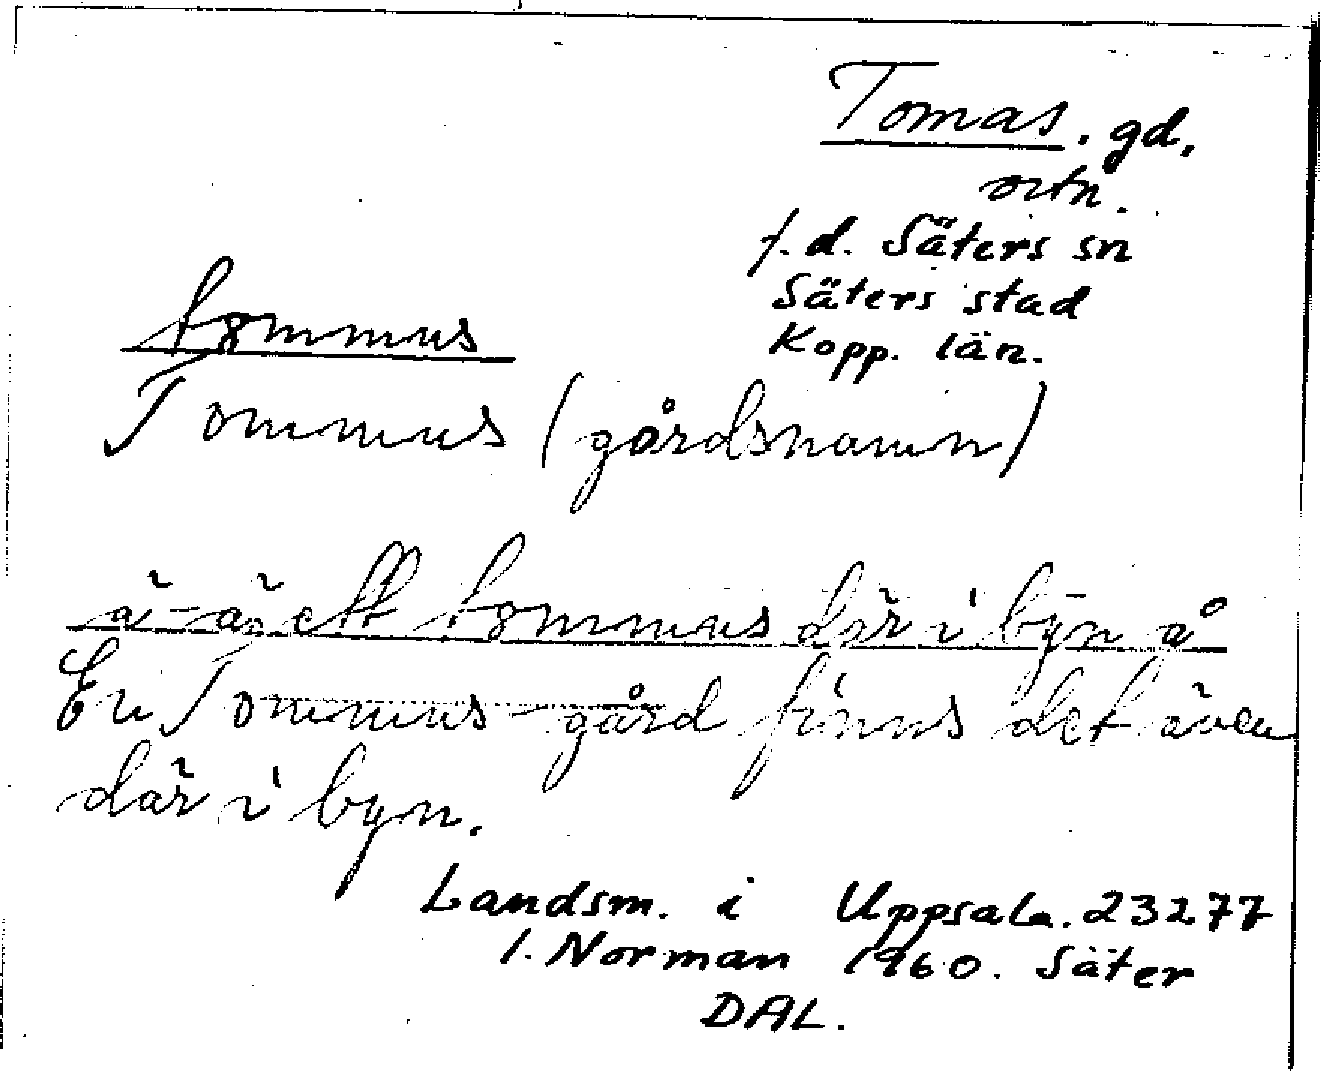 Tomas. gd.
ortn.
f.d. Säters sn
Säters stad
Kopp. län.
tommus
Tommus (gårdsnamn)
ä-ä ett tommus där i byn å
En Tommus-gård finns det även
där i byn.
Landsm. i Uppsala. 23277
I. Norman 1960. Säter
DAL.